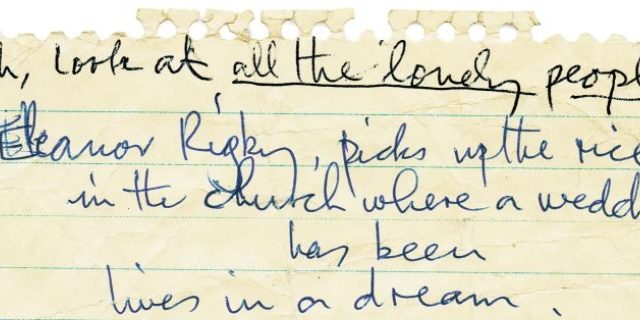 h, Look at all the lonely peopl
Eleanor Rigby, picks up the rice
in the church where a wedd
has been
lives in a dream.